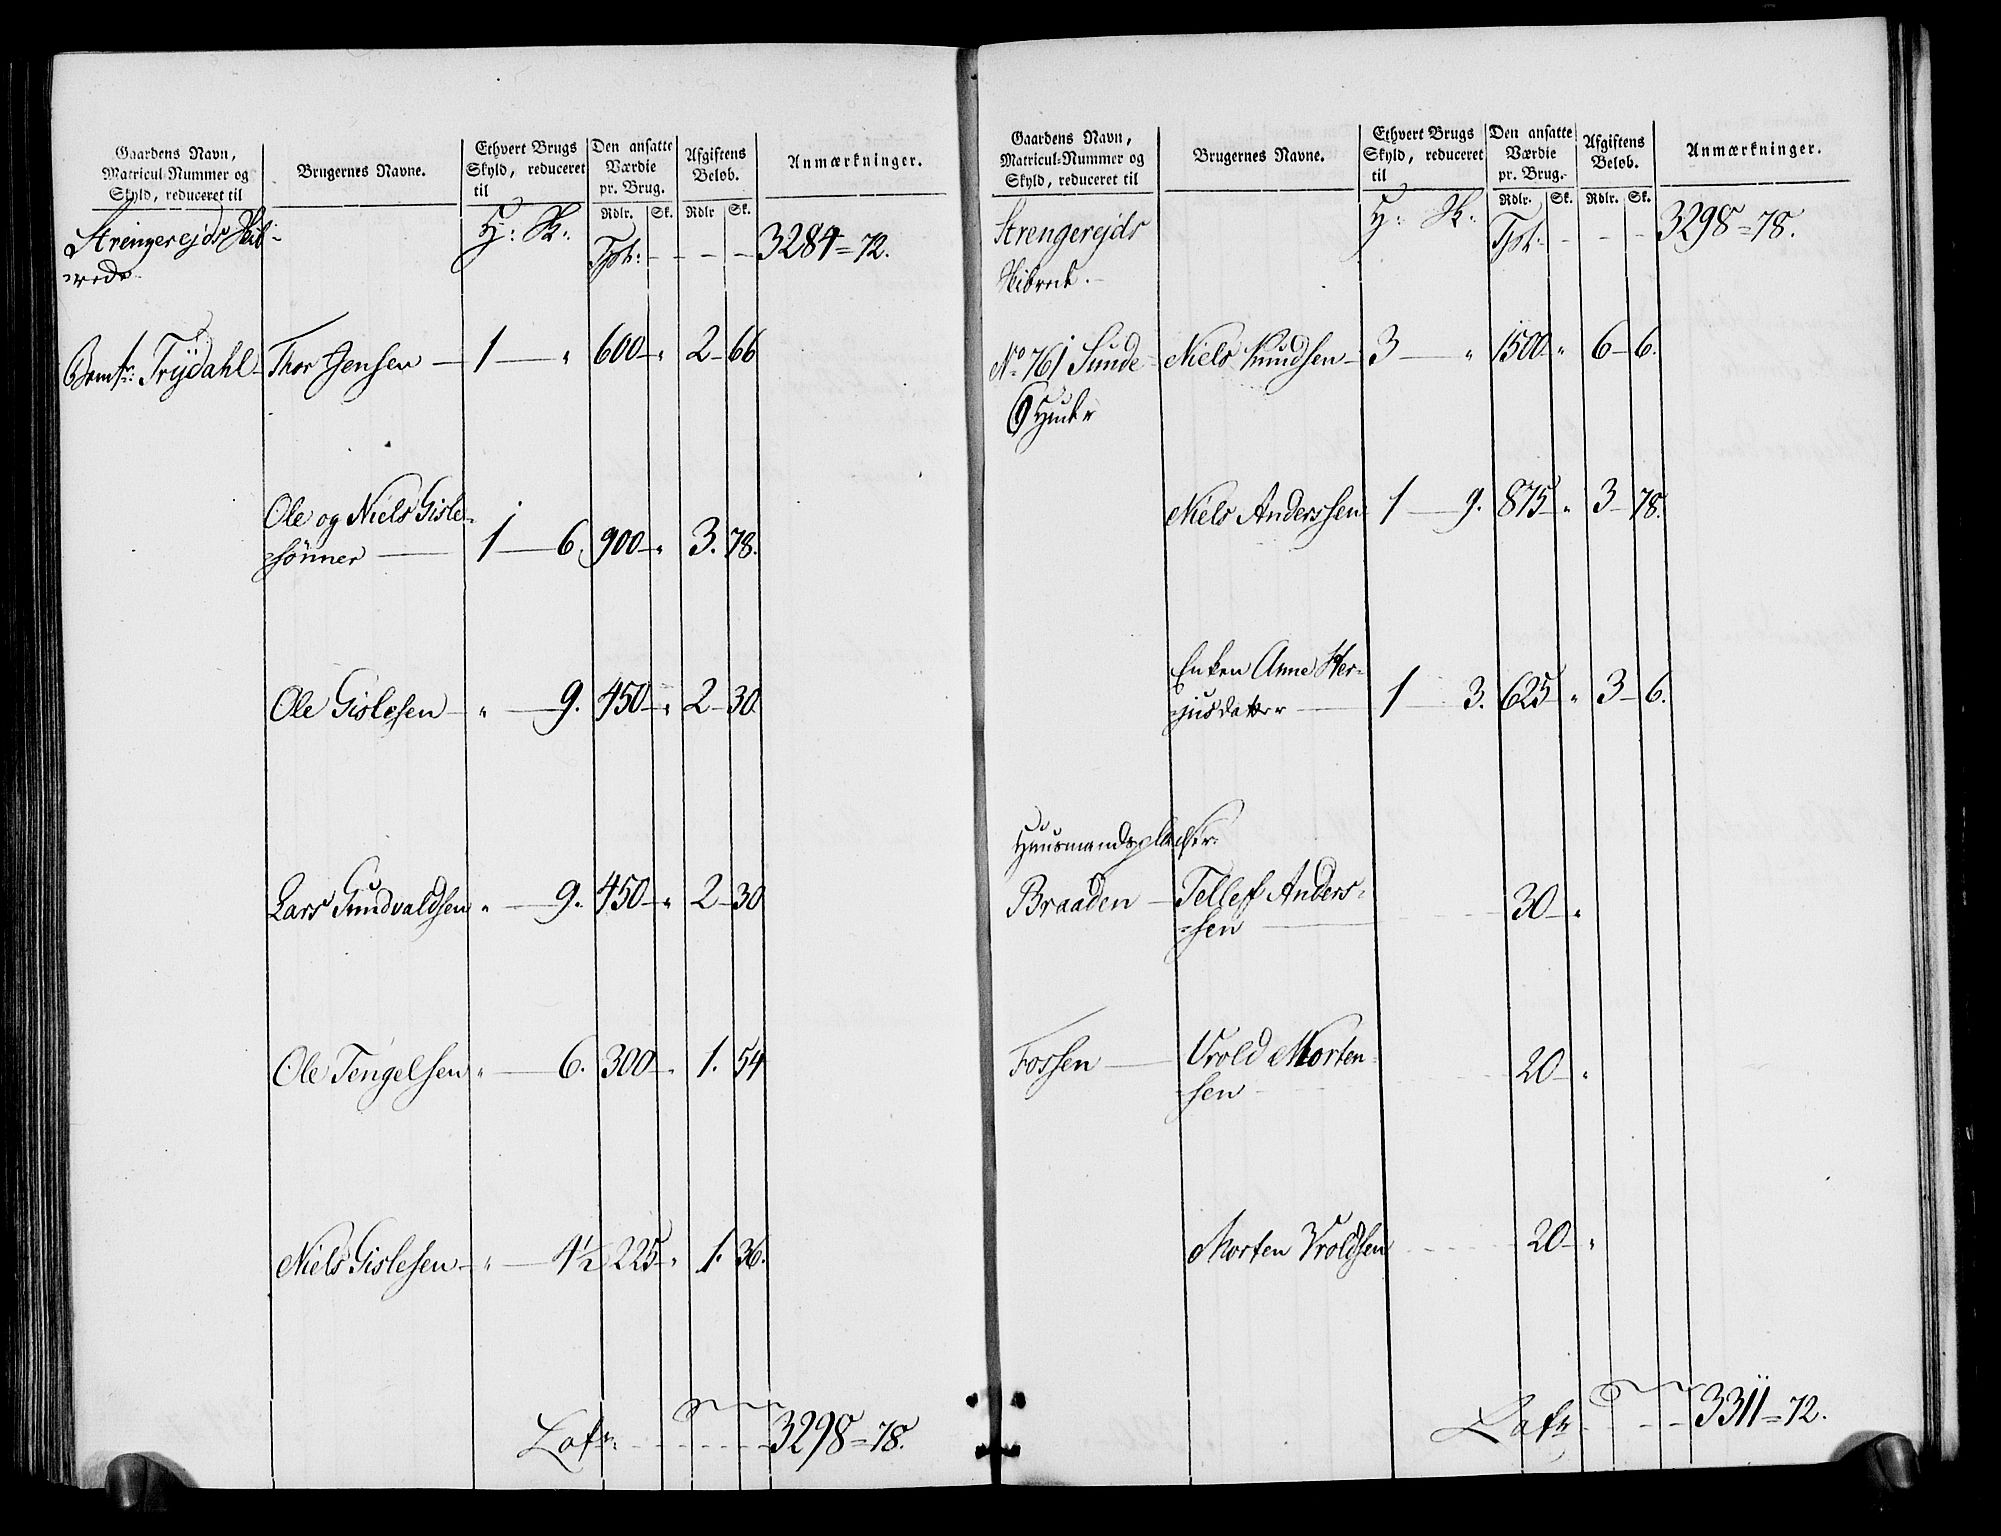 Gaardens Navn,
Matricul-Nummer og
Skyld, reduceret til
Brugernes Navne.
Ethvert Brugs
Skyld, reduceret
til
Den ansatte
Værdie
pr. Brug.
Afgiftens
Beløb.
Anmærkninger.
Rdlr. Sk. Rdlr Sk.
Strengerejds Skib
rede
H: Sk: Tpt: - - - - 3284=72.
Trydahl Thor Jensen 1 — " 600 " 2 66
Ole og Niels Gisle-
sönner 1 — 6. 900 " 3. 78.
Ole Gislesen " 9. 450 " 2 30
Lars Gundvaldsen " 9. 450 " 2 30
Ole Tengelsen " 6. 300 " 1. 54
Niels Gislesen " 4½ 225 " 1. 36.
Lat: 3298=78.
Gaardens Navn,
Matricul-Nummer og
Skyld, reduceret til
Brugernes Navne.
Ethvert Brugs
Skyld, reduceret
til
Den ansatte
Værdie
pr. Brug.
Afgiftens
Beløb.
Anmærkninger.
Rdlr. Sk. Rdlr. Sk.
Strengerejds
Skibrede.
H: Sk: Tpt: - - - 3298=78.
No 761 Sunde Niels Knudsen 3 — " 1500 " 6 6.
6 Huder
Niels Anderssen 1 — 9. 875 " 3 78.
Enken Anne Her-
jusdatter 1 3. 625 " 3 6.
Huusmandspladser:
Braaden Tellef Anders-
sen 30 "
Fossen Vrold Morten-
sen 20 "
Morten Vroldsen 20 "
Lat: 3311=72.